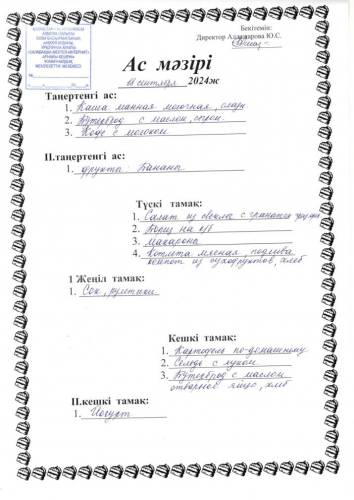 Бекітемін:
Директор
Ас мәзірі
сентября 2024ж
Таңертеңгі ас:
1. Каша манная молочная,
2. Бутерброд с маслом, сыром
3. Кофе с молоком
II.таңертеңгі ас:
1. фрукты: Бананы
Түскі тамақ:
1. Салат из свеклы с
2. Борщ на к/б
3. макароны
4. Котлета мясная, подлива
компот из сухофруктов, хлеб
1 Жеңіл тамақ:
1. Сок, рулетики
Кешкі тамақ:
1. Картофель по-домашнему
2. Сельдь с луком
3. Бутерброд с маслом
отварное яйцо, хлеб
II.кешкі тамақ:
1. Йогурт